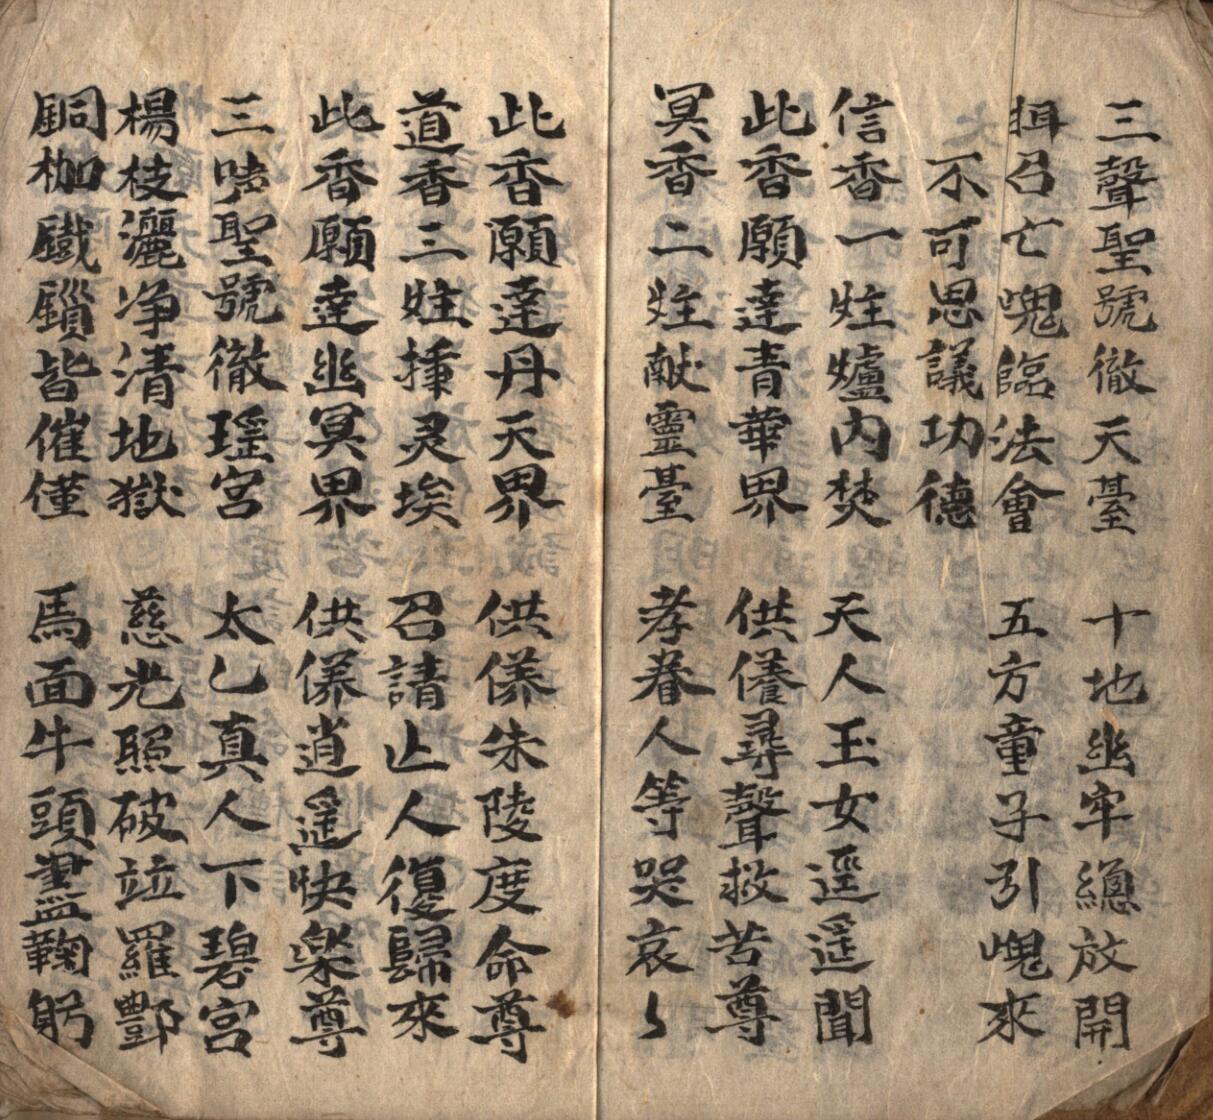 三聲聖號徹天臺　十地幽牢緫放開
揖召亡魂臨法會　五方童子引魂來
不可思議功德
信香一炷爐內焚　天人玉女逕遥聞
此香願達青華界　供養尋聲救苦尊
冥香二炷献靈臺　孝眷人等哭哀〻
此香願達丹天界　供养朱陵度命尊
道香三炷捶灵埃　召請亾人復歸來
此香願達幽冥界　供养逍遥快樂尊
三聲聖號徹瑶宮　太乙真人下碧宮
楊枝灑净清地獄　慈光照破竝羅酆
銅枷鐡鎖皆催僅　馬面牛頭盡鞠躬